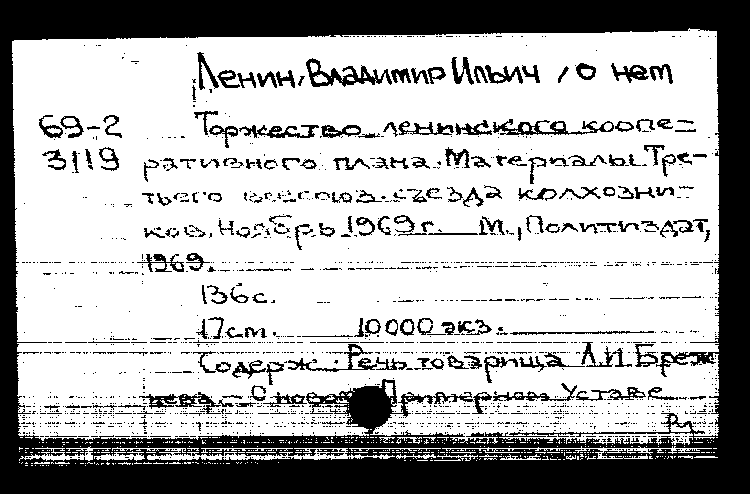 Ленин, Владимир Ильич /о нем
69-2
3119
Торжество ленинского коопе-
ративного плана. Материалы Тре-
тьего всесоюз. съезда колхозни-
ков. Ноябрь 1969 г. М., Политиздат,
1969.
136 с.
17 см. 10000 экз.
Содерж. Речь товарища Л.И. Бреж
нева. - О новом Примерном Уставе